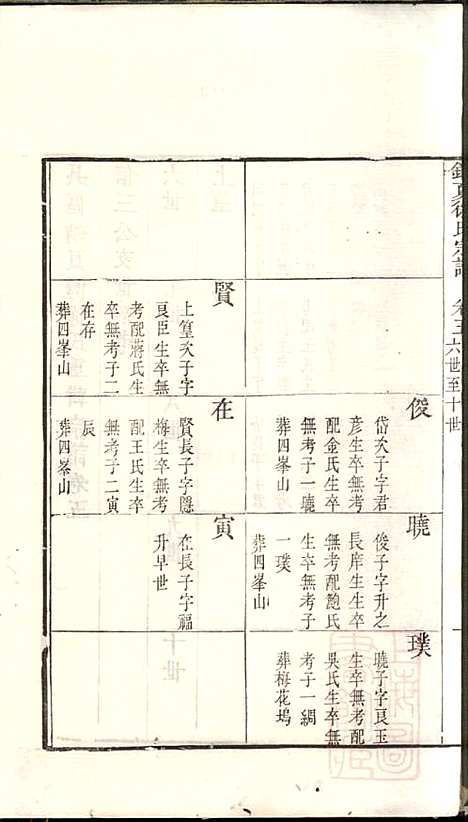 徐氏宗譜
卷五六世至十世
俊
岱次子字君
彦生卒無考
配金氏生卒
無考子一曉
葬四峯山
曉
俊子字升之
長庠生生卒
無考配趙氏
生卒無考子
一璞
葬四峯山
璞
曉子字良玉
生卒無考配
吳氏生卒無
考子一綢
葬梅花塢
賢
上篁次子字
良臣生卒無
考配蔣氏生
卒無考子二
在存
葬四峯山
在
賢長子字隱
梅生卒無考
配王氏生卒
無考子二寅
辰
葬四峯山
寅
在長子字福
升早世